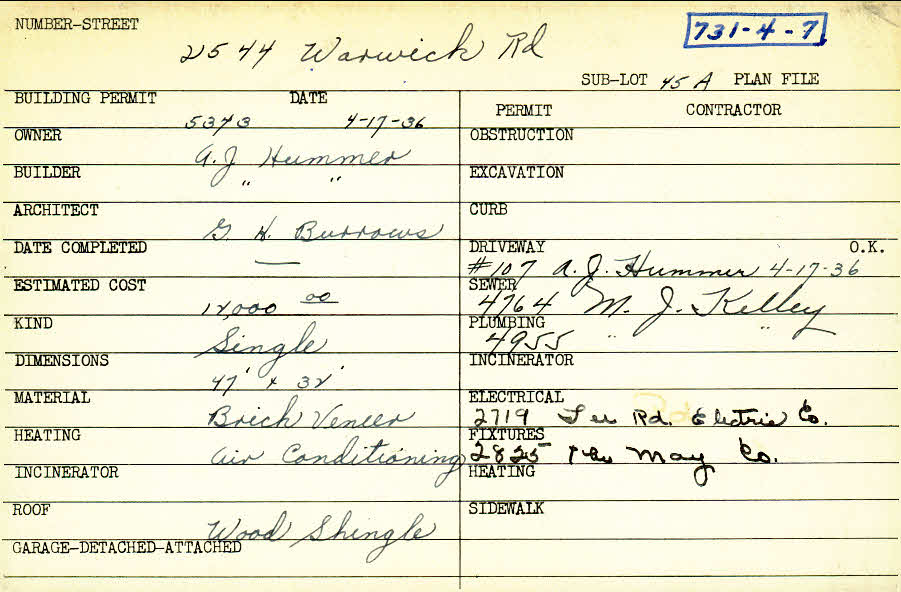 NUMBER-STREET
2544 Warwick Rd
731-4-7
SUB-LOT 45 A PLAN FILE
BUILDING PERMIT DATE
5373 4-17-36
PERMIT CONTRACTOR
OWNER
A.J Hummer
OBSTRUCTION
BUILDER
" "
EXCAVATION
ARCHITECT
G. H. Burrows
CURB
DATE COMPLETED
—
DRIVEWAY O.K.
#107 A. J. Hummer 4-17-36
ESTIMATED COST
12,000 00
SEWER
4764 M. J. Kelley
KIND
Single
PLUMBING
4955 " "
DIMENSIONS
47' x 32'
INCINERATOR
MATERIAL
Brick Veneer
ELECTRICAL
2719 Lee Rd. Electric Co.
HEATING
Air Conditioning
FIXTURES
2825 The May Co.
INCINERATOR
HEATING
ROOF
Wood Shingle
SIDEWALK
GARAGE-DETACHED-ATTACHED